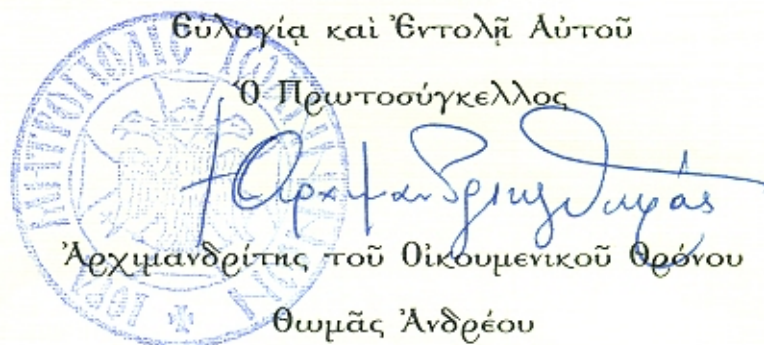 Εὐλογίᾳ καὶ Ἐντολῇ Αὐτοῦ
Ὁ Πρωτοσύγκελλος
† Ἀρχιμανδρίτης Θωμάς
Ἀρχιμανδρίτης τοῦ Οἰκουμενικοῦ Θρόνου
Θωμᾶς Ἀνδρέου